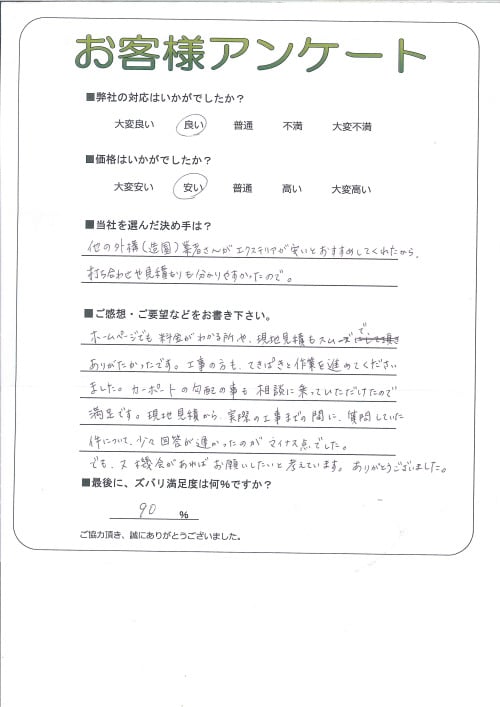 お客様アンケート
■弊社の対応はいかがでしたか？
大変良い 良い 普通 不満 大変不満
■価格はいかがでしたか？
大変安い 安い 普通 高い 大変高い
■当社を選んだ決め手は？
他の外構（造園）業者さんがエクステリアが安いとおすすめしてくれたから、
打ち合わせや見積もりも分かりやすかったので。
■ご感想・ご要望などをお書き下さい。
ホームページでも料金がわかる所や、現地見積もスムーズで、
ありがたかったです。工事の方も、てきぱきと作業を進めてください
ました。カーポートの勾配の事も相談に乗っていただけたので
満足です。現地見積から、実際の工事までの間に、質問していた
件について、少々回答が遅かったのがマイナス点でした。
でも、又機会があればお願いしたいと考えています。ありがとうございました。
■最後に、ズバリ満足度は何％ですか？
90 ％
ご協力頂き、誠にありがとうございました。